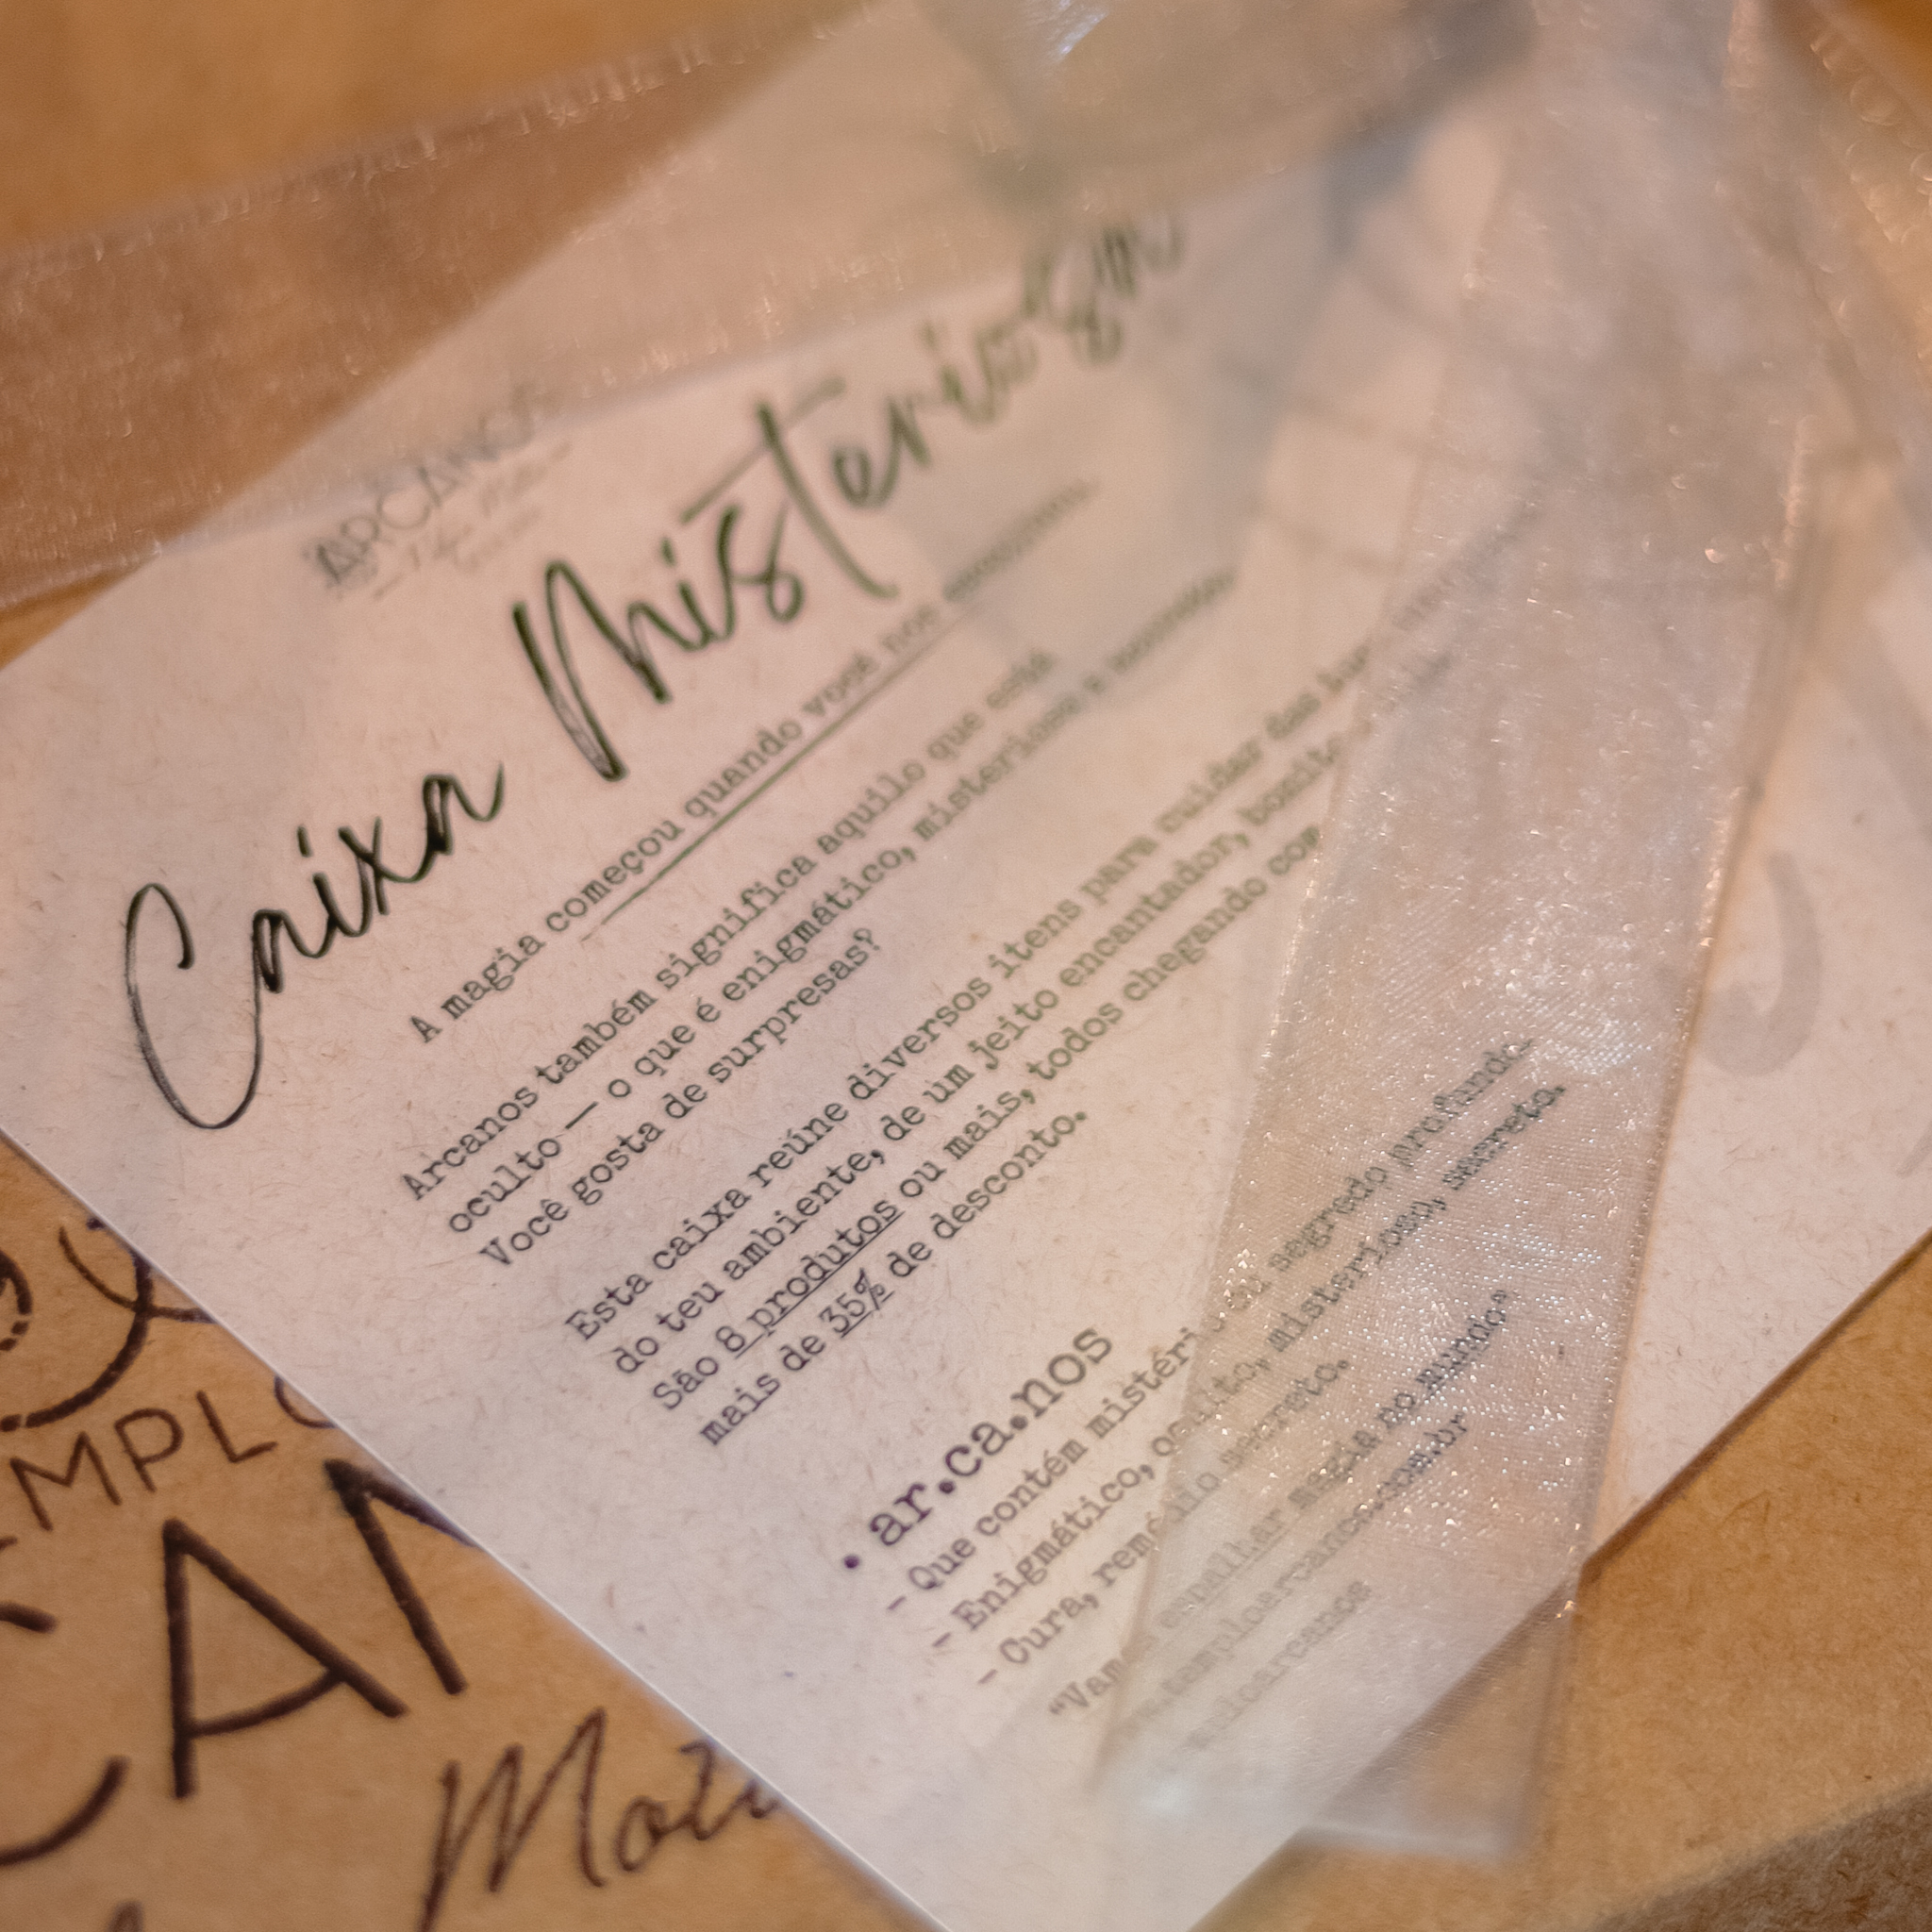 ARCANOS
Caixa Misteriosa
A magia começou quando você nos
Arcanos também significa aquilo que está
oculto — o que é enigmático, misterioso e
Você gosta de surpresas?
Esta caixa reúne diversos itens para cuidar das
do teu ambiente, de um jeito encantador, bonito
São 8 produtos ou mais, todos chegando com
mais de 35% de desconto.
• ar.ca.nos
- Que contém mistério ou segredo profundo.
- Enigmático, oculto, misterioso, secreto.
- Cura, remédio secreto.
"Vamos espalhar magia no mundo"
temploarcanos.com.br
MPLO
CAN